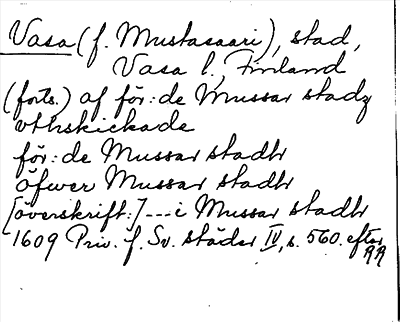 Vasa (f. Mustasaari), stad,
Vasa l., Finland
(forts.) af för:de Mussar stadz
vthskickade
för:de Mussar stadtr
öfwer Mussar stadtr
[överskrift:] --- i Mussar stadtr
1609 Priv. f. Sv. städer IV, s. 560. efter
RR